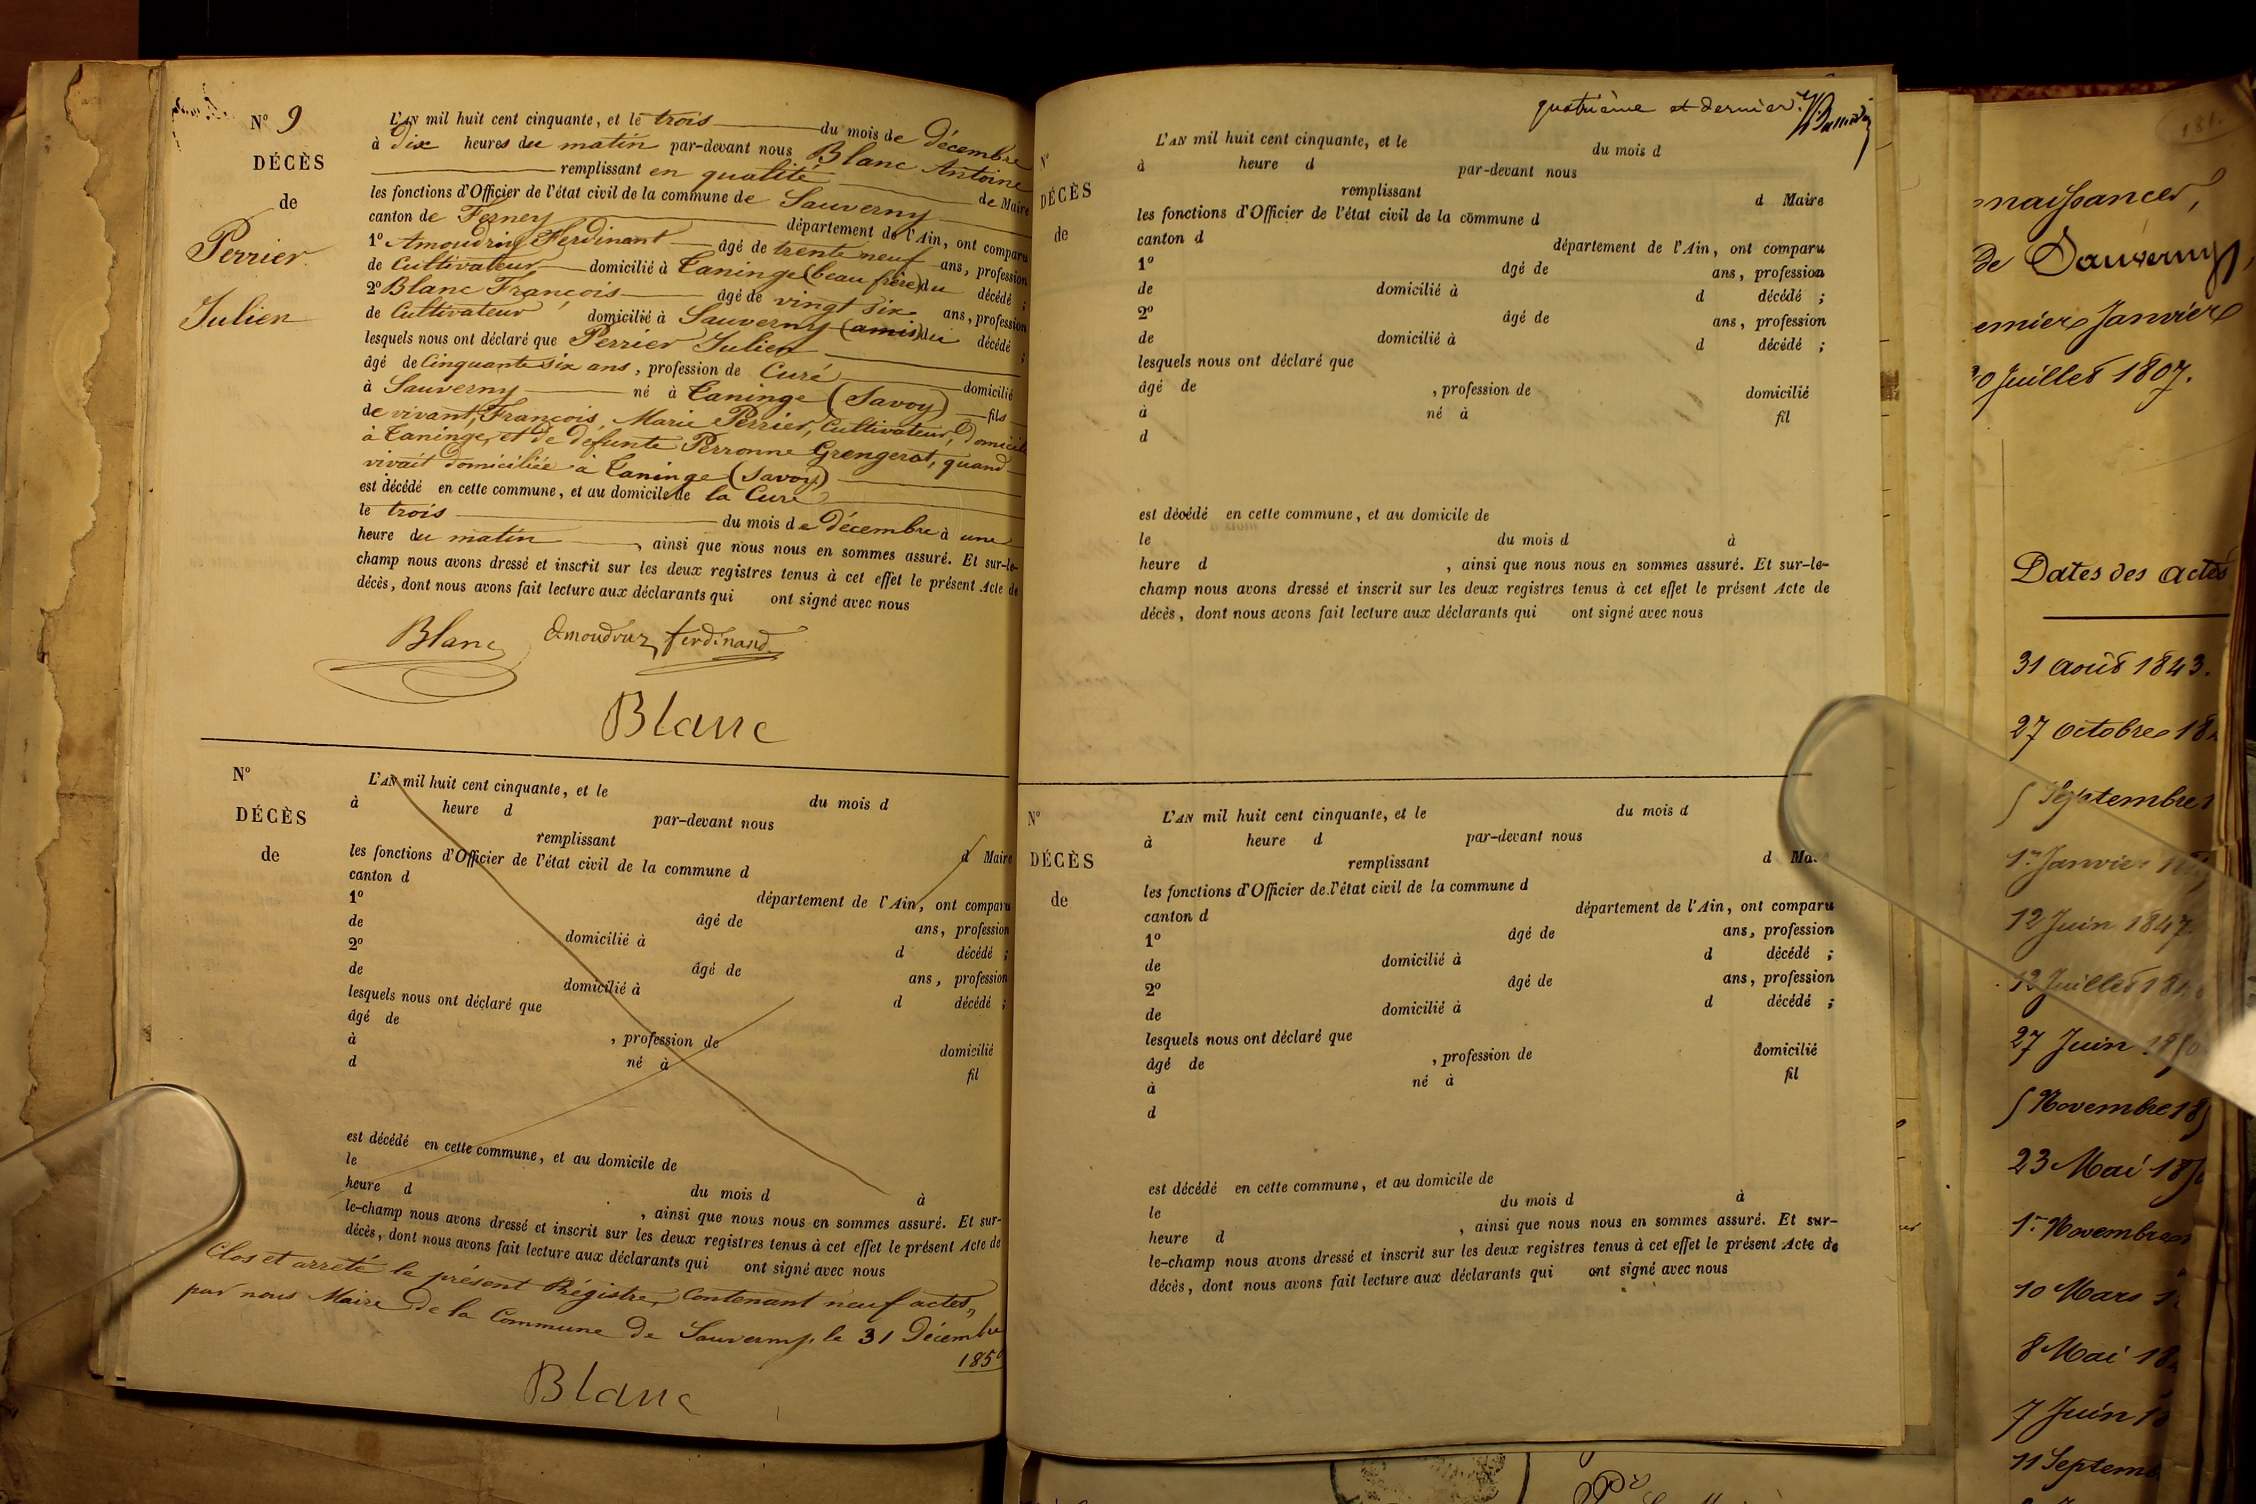 N° 9
DÉCÈS
de
Perrier
Julien
L'AN mil huit cent cinquante, et le trois du mois de Décembre
à Dix heures du matin par-devant nous Blanc Antoine
remplissant en qualité de Maire
les fonctions d'Officier de l'état civil de la commune de Sauverny
canton de Ferney département de l'Ain, ont comparu
1° Amoudruz Ferdinant âgé de trente neuf ans, profession
de Cultivateur domicilié à Taninge (beau frère) du décédé ;
2° Blanc François âgé de vingt six ans, profession
de Cultivateur domicilié à Sauverny (amis) du décédé ;
lesquels nous ont déclaré que Perrier Julien
âgé de Cinquante six ans, profession de Curé domicilié
à Sauverny né à Taninge (Savoy) fils
de vivant, François, Marie Perrier, Cultivateur, Domicilié
à Taninge, et de défunte Perronne Grengerat, quand
vivait domiciliée à Taninge (Savoy)
est décédé en cette commune, et au domicile de la Cure
le trois du mois de Décembre à une
heure du matin , ainsi que nous nous en sommes assuré. Et sur-le-
champ nous avons dressé et inscrit sur les deux registres tenus à cet effet le présent Acte de
décès, dont nous avons fait lecture aux déclarants qui ont signé avec nous
Blanc Amoudruz ferdinand
Blanc
N°
DÉCÈS
de
L'AN mil huit cent cinquante, et le du mois d
à heure d par-devant nous
remplissant d Maire
les fonctions d'Officier de l'état civil de la commune d
canton d département de l'Ain, ont comparu
1° âgé de ans, profession
de domicilié à d décédé ;
2° âgé de ans, profession
de domicilié à d décédé ;
lesquels nous ont déclaré que
âgé de , profession de domicilié
à né à fil
d
est décédé en cette commune, et au domicile de
le du mois d à
heure d , ainsi que nous nous en sommes assuré. Et sur-
le-champ nous avons dressé et inscrit sur les deux registres tenus à cet effet le présent Acte de
décès, dont nous avons fait lecture aux déclarants qui ont signé avec nous
Clos et arrêté le présent Régistre, Contenant neuf actes,
par nous Maire de la Commune de Sauverny, le 31 Décembre
1850
Blanc
quatrième et dernier.
N°
DÉCÈS
de
L'AN mil huit cent cinquante, et le du mois d
à heure d par-devant nous
remplissant d Maire
les fonctions d'Officier de l'état civil de la commune d
canton d département de l'Ain, ont comparu
1° âgé de ans, profession
de domicilié à d décédé ;
2° âgé de ans, profession
de domicilié à d décédé ;
lesquels nous ont déclaré que
âgé de , profession de domicilié
à né à fil
d
est décédé en cette commune, et au domicile de
le du mois d à
heure d , ainsi que nous nous en sommes assuré. Et sur-le-
champ nous avons dressé et inscrit sur les deux registres tenus à cet effet le présent Acte de
décès, dont nous avons fait lecture aux déclarants qui ont signé avec nous
N°
DÉCÈS
de
L'AN mil huit cent cinquante, et le du mois d
à heure d par-devant nous
remplissant d Ma
les fonctions d'Officier de l'état civil de la commune d
canton d département de l'Ain, ont comparu
1° âgé de ans, profession
de domicilié à d décédé ;
2° âgé de ans, profession
de domicilié à d décédé ;
lesquels nous ont déclaré que
âgé de , profession de domicilié
à né à fil
d
est décédé en cette commune, et au domicile de
le du mois d à
heure d , ainsi que nous nous en sommes assuré. Et sur-
le-champ nous avons dressé et inscrit sur les deux registres tenus à cet effet le présent Acte de
décès, dont nous avons fait lecture aux déclarants qui ont signé avec nous
181.
naissances,
de Sauverny,
emier Janvier
Juillet 1807.
Dates des actes
31 août 1843.
27 octobre 18
5 Septembre 1
1er Janvier
12 Juin 1847
12 Juillet 18
27 Juin 1850
5 Novembre 18
23 Mai 18
1er Novembre
10 Mars 1
8 Mai 18
7 Juin 18
11 Septem